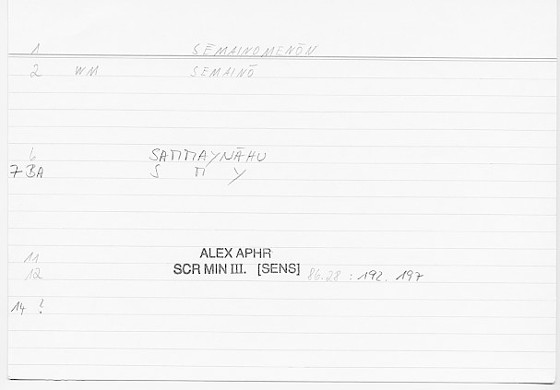 1 SĒMAINOMENŌN
2 WM SEMAINŌ
6 SAMMAYNĀHU
7 BA S M Y
11 ALEX APHR
12 SCR MIN III. [SENS] 86.28 : 192. 197
14 !